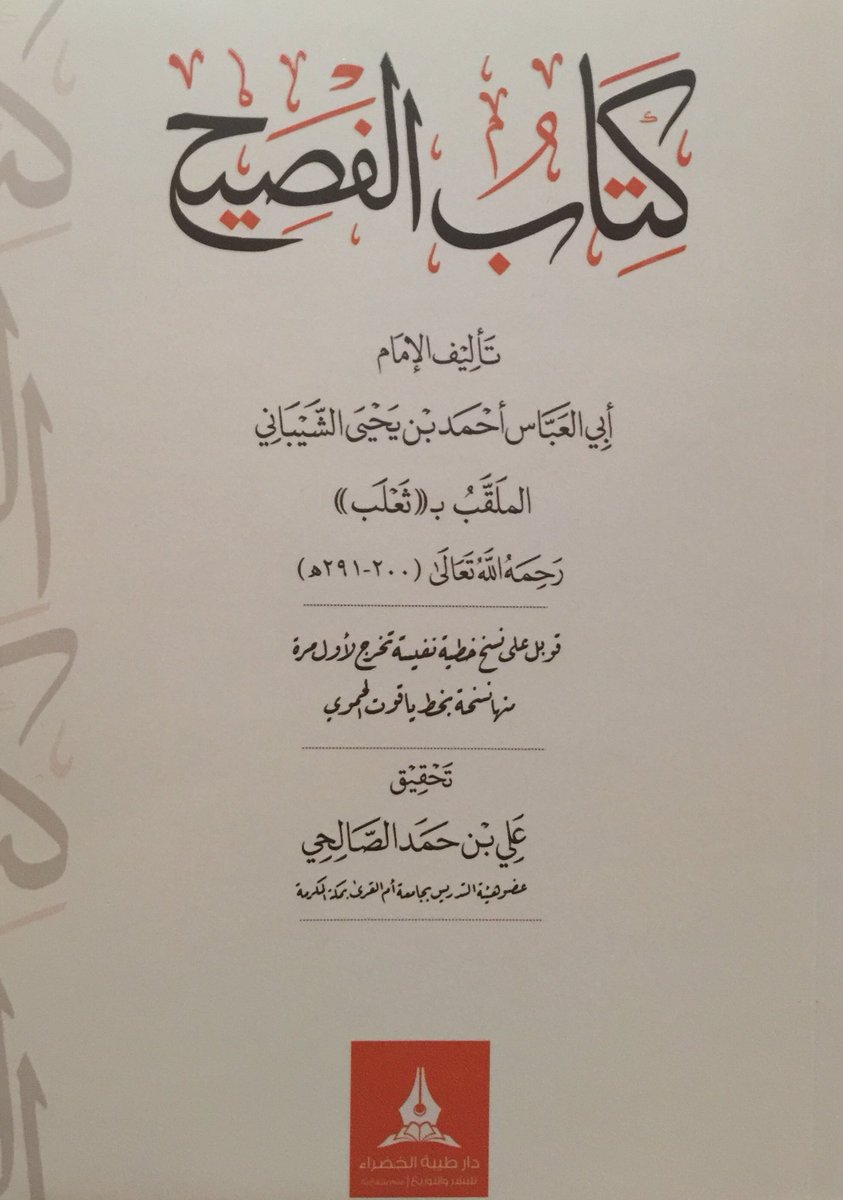 كِتَابُ الفَصِيح
تَأْلِيْف الإِمَام
أَبِي العَبَّاس أَحْمَد بْن يَحْيَى الشَّيْبَانِي
الملَقَّبُ بـ((ثَعْلَب))
رَحِمَهُ اللَّهُ تَعَالَى (٢٠٠-٢٩١هـ)
قوبل على نسخ خطية نفيسة تخرج لأول مرة
منها نسخة بخط ياقوت الحموي
تَحْقِيْق
عَلِي بْن حَمَد الصَّالِحِي
عضو هيئة التدريس بجامعة أم القرى بمكة المكرمة
دار طيبة الخضراء
للنشر والتوزيع